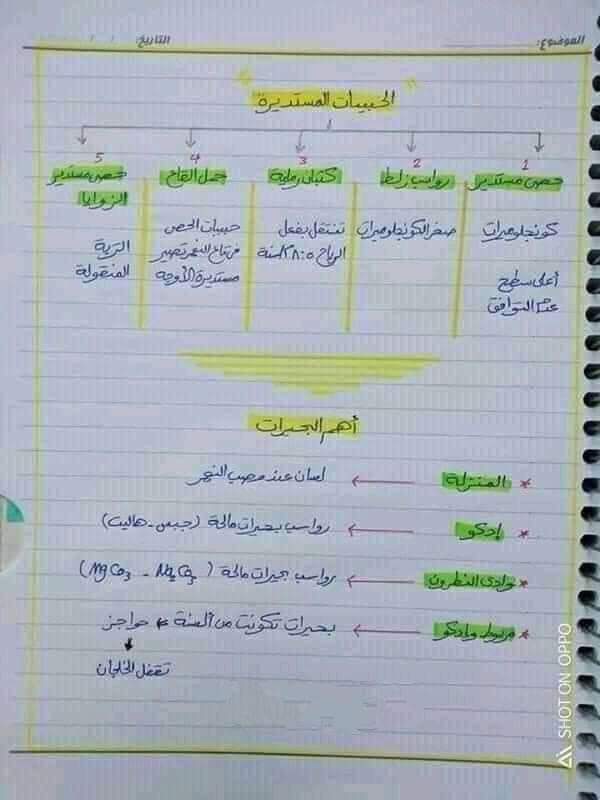 الموضوع:
التاريخ: / /
" الحبيبات المستديرة "
1 2 3 4 5
حصى مستدير
كونجلوميرات
أعلى سطح
عدم التوافق
رواسب زلط
صغر الكونجلوميرات
كثبان رملية
تنتقل بفعل
الرياح ٥:٨ م/سنة
جمل القاع
حبيبات الحصى
فى قاع النهر تصير
مستديرة الأوجه
حصى مستدير
الزوايا
التربة
المنقولة
أهم البحيرات
* المنزلة ← لسان عند مصب النهر
* إدكو ← رواسب بحيرات مالحة (جبس - هاليت)
* وادى النطرون ← رواسب بحيرات مالحة ( MgCo₃ - Na₂Co₃ )
* مريوط وادكو ← بحيرات تكونت من ألسنة * حواجز
تقفل الخلجان
SHOT ON OPPO